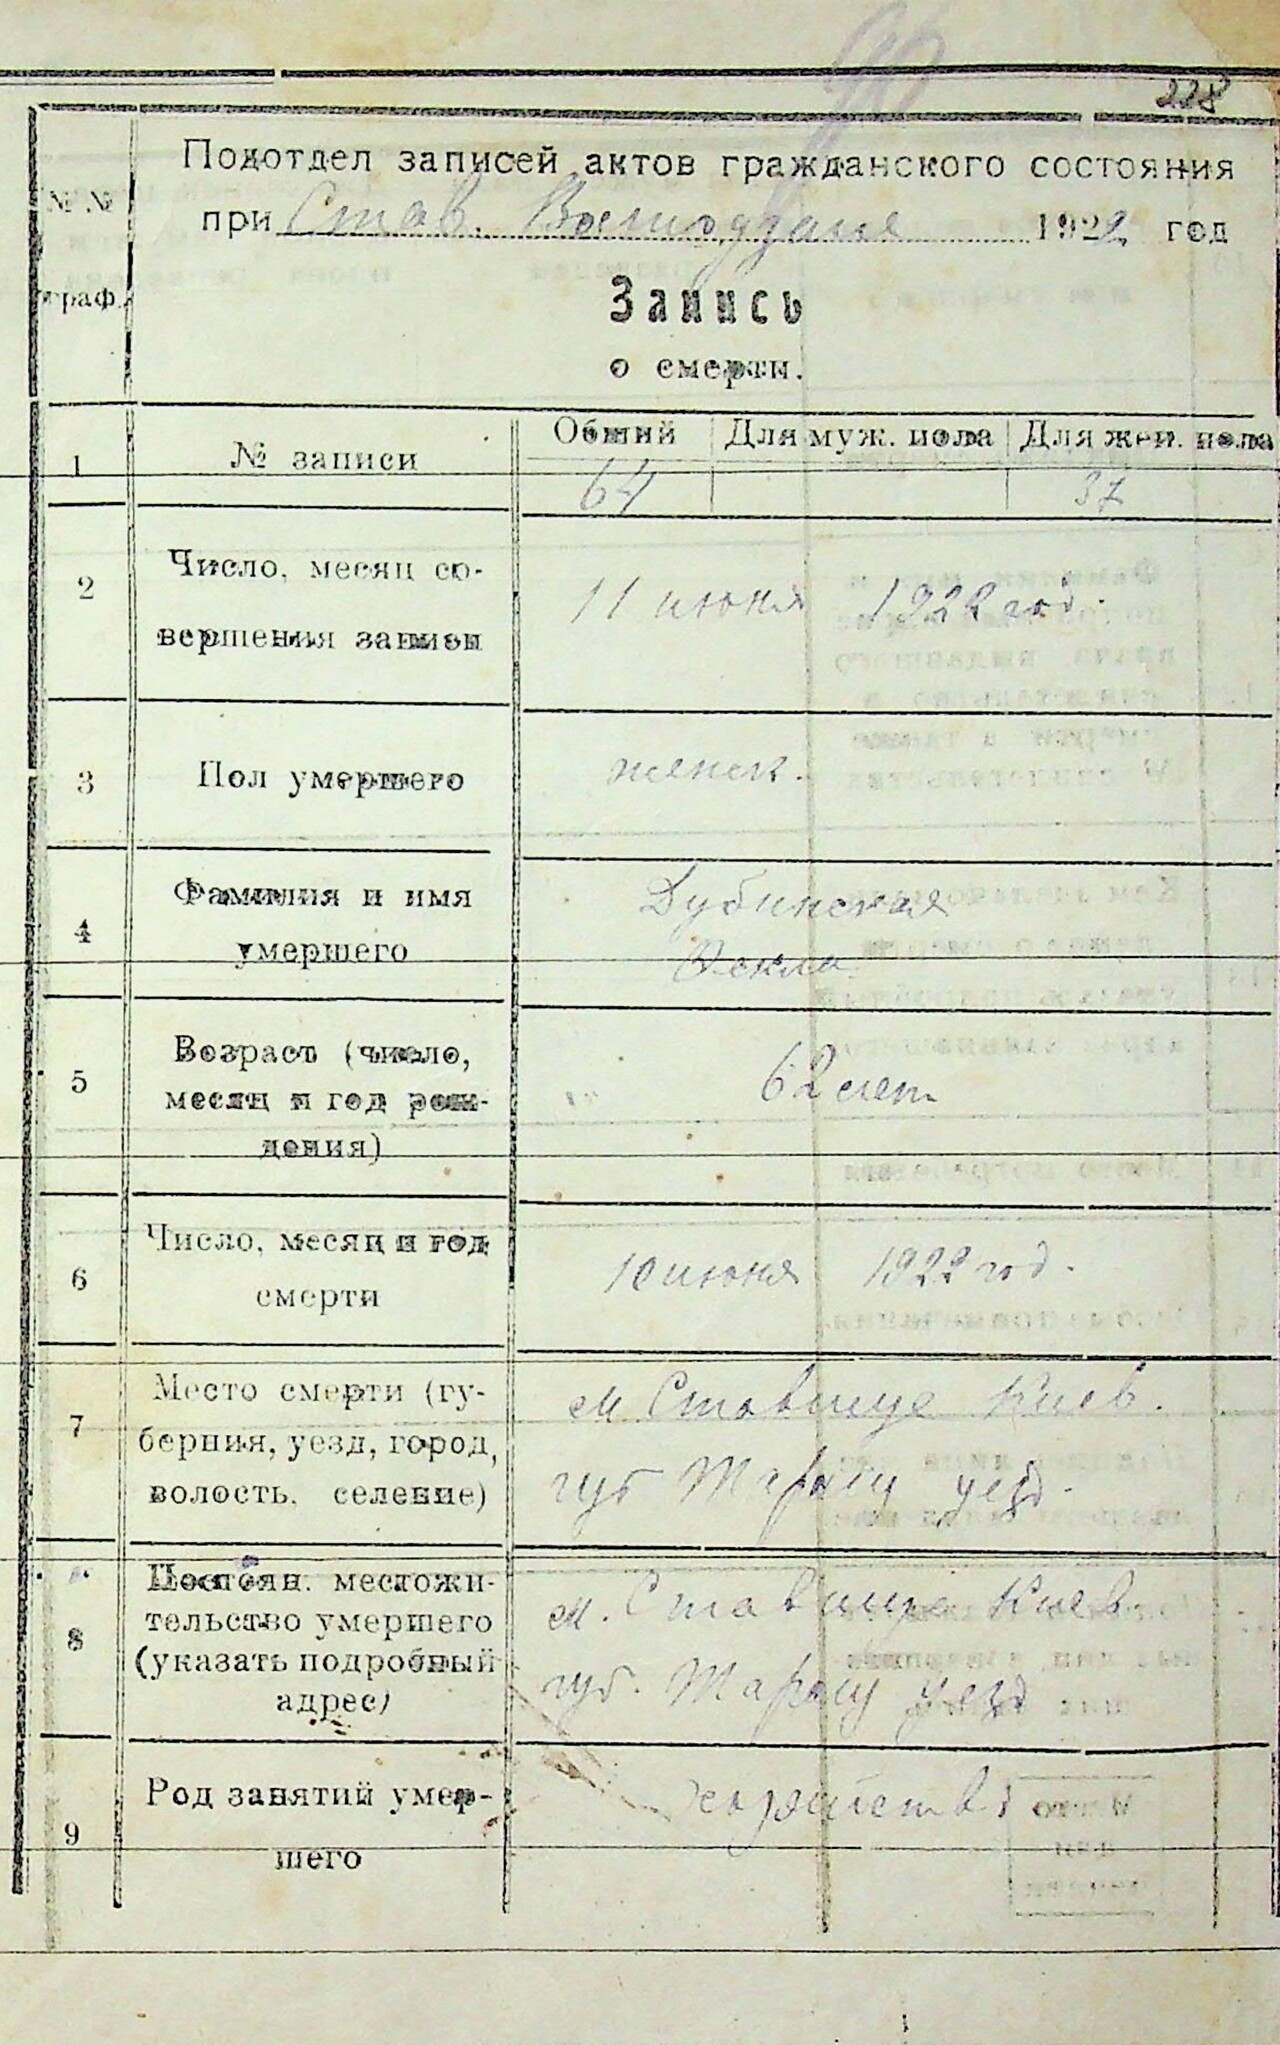 228
Подотдел записей актов гражданского состояния
№ № при Став. 1922 год
граф. Запись
о смерти.
Общий Для муж. пола Для жен. пола
1 № записи
64 37
2 Число, месяц со-
вершения записи
11 июня 1922 год.
3 Пол умершего женск.
4 Фамилия и имя
умершего
Дубинская
Фекла
5 Возраст (число,
месяц и год рож-
дения)
62 лет
6 Число, месяц и год
смерти
10 июня 1922 год.
7 Место смерти (гу-
берния, уезд, город,
волость, селение)
м Ставище Киев.
губ Таращ уезд.
8 Постоян. местожи-
тельство умершего
(указать подробный
адрес)
м. Ставище Киев.
губ. Таращ уезд
9 Род занятий умер-
шего